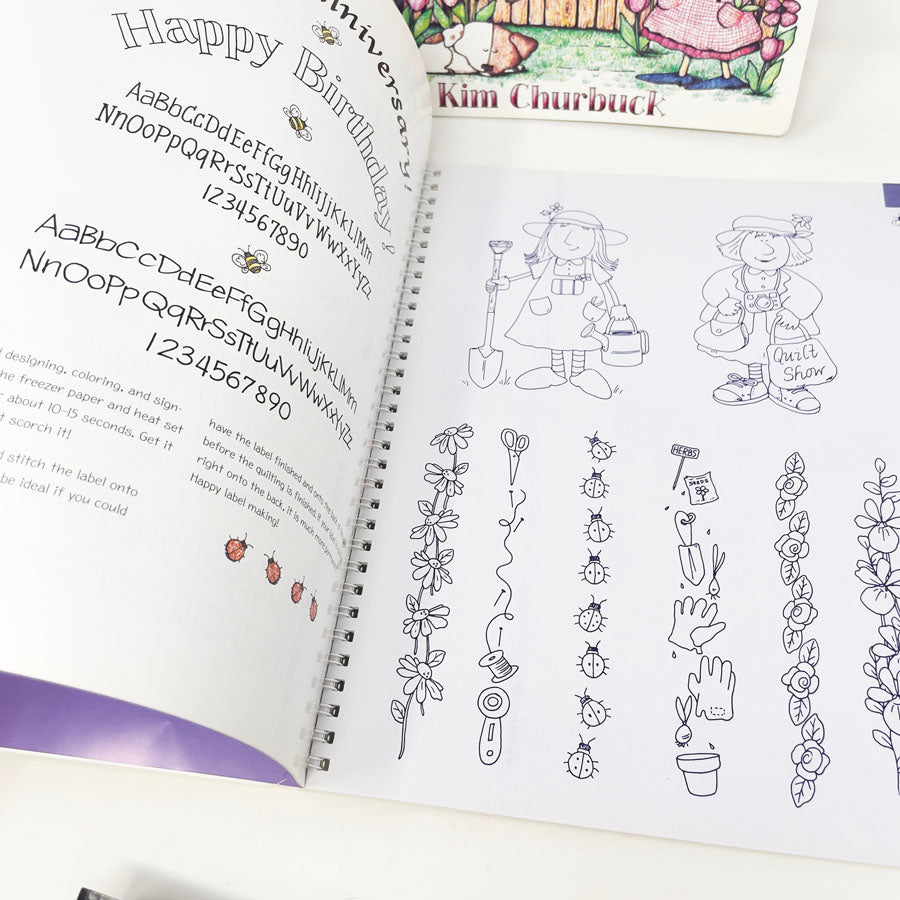 nniversary!
Happy Birthday!
AaBbCcDdEeFfGgHhIiJjKkLlMm
NnOoPpQqRrSsTtUuVvWwXxYyZz
1234567890
AaBbCcDdEeFfGgHhIiJjKkLlMm
NnOoPpQqRrSsTtUuVvWwXxYyZz
1234567890
designing, coloring, and sign-
he freezer paper and heat set
about 10-15 seconds. Get it
t scorch it!
d stitch the label onto
be ideal if you could
have the label finished and onto the back
before the quilting is finished. If your
right onto the back, it is much more
Happy label making!
Kim Churbuck
Quilt
Show
HERBS
SEEDS